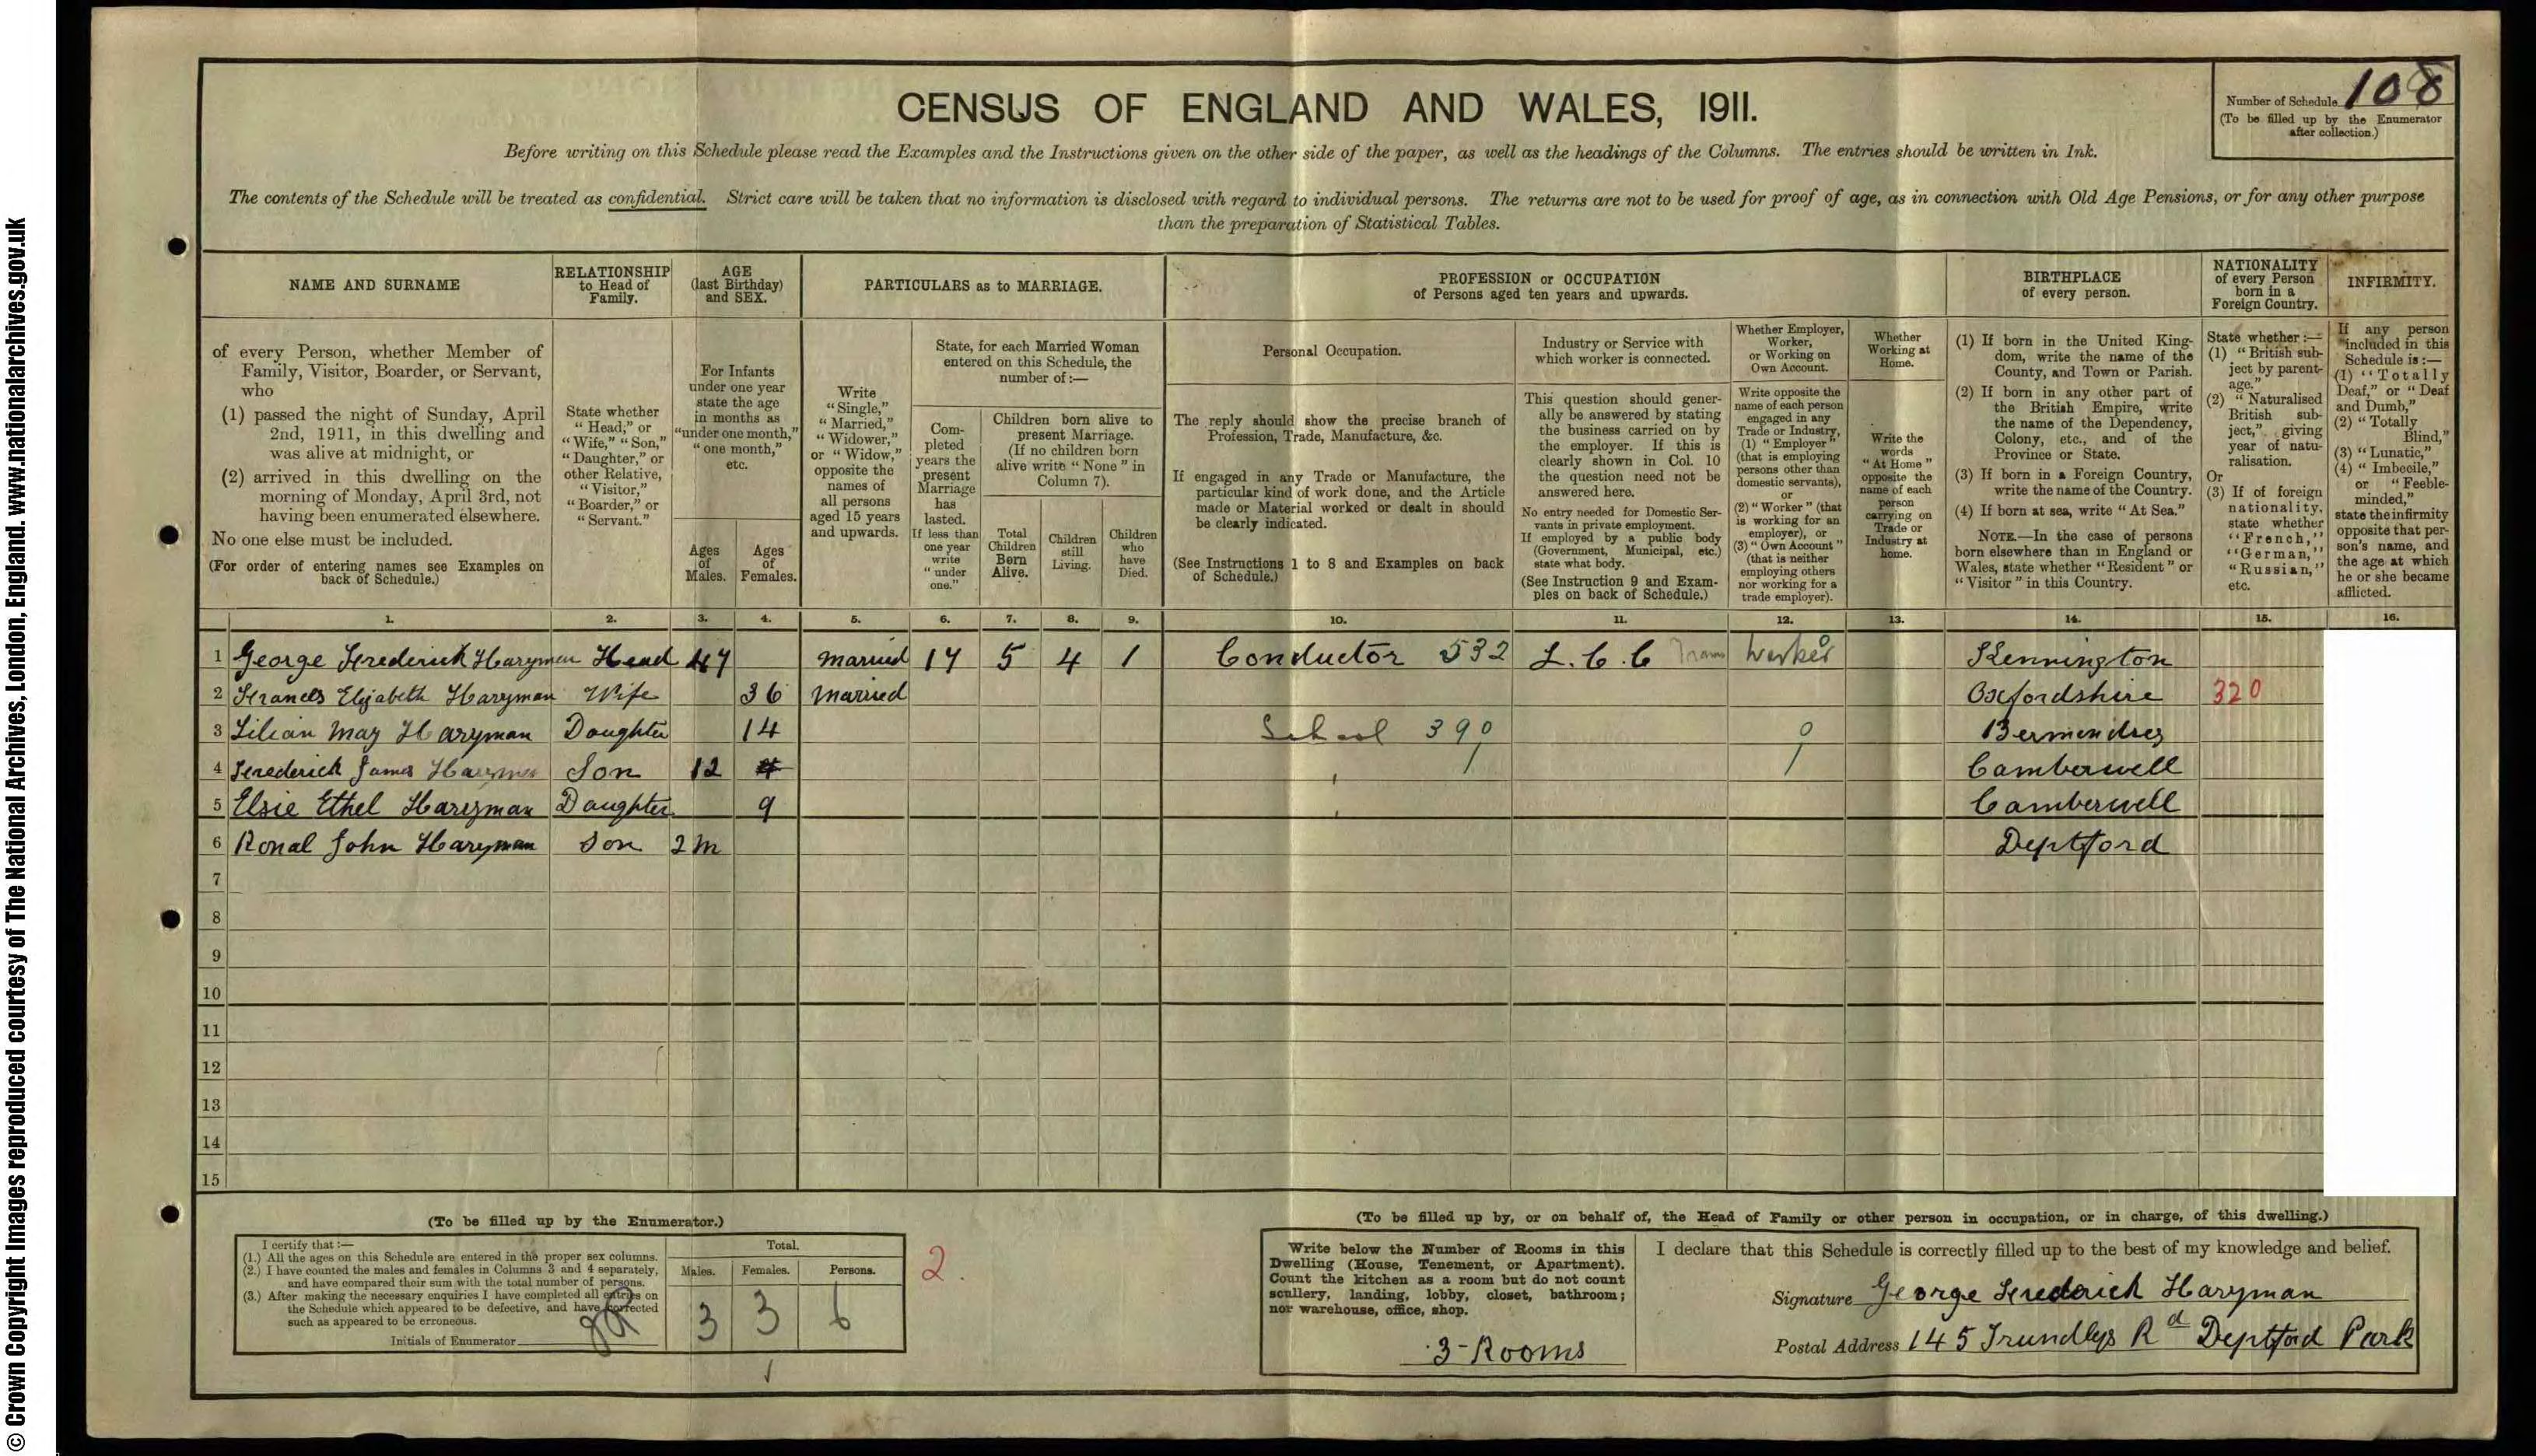 © Crown Copyright Images reproduced courtesy of The National Archives, London, England. www.nationalarchives.gov.uk
Number of Schedule 108
(To be filled up by the Enumerator
after collection.)
CENSUS OF ENGLAND AND WALES, 1911.
Before writing on this Schedule please read the Examples and the Instructions given on the other side of the paper, as well as the headings of the Columns. The entries should be written in Ink.
The contents of the Schedule will be treated as confidential. Strict care will be taken that no information is disclosed with regard to individual persons. The returns are not to be used for proof of age, as in connection with Old Age Pensions, or for any other purpose
than the preparation of Statistical Tables.
NAME AND SURNAME
of every Person, whether Member of
Family, Visitor, Boarder, or Servant,
who
(1) passed the night of Sunday, April
2nd, 1911, in this dwelling and
was alive at midnight, or
(2) arrived in this dwelling on the
morning of Monday, April 3rd, not
having been enumerated elsewhere.
No one else must be included.
(For order of entering names see Examples on
back of Schedule.)
RELATIONSHIP
to Head of
Family.
State whether
"Head," or
"Wife," "Son,"
"Daughter," or
other Relative,
"Visitor,"
"Boarder," or
"Servant."
AGE
(last Birthday)
and SEX.
For Infants
under one year
state the age
in months as
"under one month,"
"one month,"
etc.
Ages
of
Males.
Ages
of
Females.
PARTICULARS as to MARRIAGE.
Write
"Single,"
"Married,"
"Widower,"
or "Widow,"
opposite the
names of
all persons
aged 15 years
and upwards.
State, for each Married Woman
entered on this Schedule, the
number of:—
Com-
pleted
years the
present
Marriage
has
lasted.
If less than
one year
write
"under
one."
Children born alive to
present Marriage.
(If no children born
alive write "None" in
Column 7).
Total
Children
Born
Alive.
Children
still
Living.
Children
who
have
Died.
PROFESSION or OCCUPATION
of Persons aged ten years and upwards.
Personal Occupation.
The reply should show the precise branch of
Profession, Trade, Manufacture, &c.
If engaged in any Trade or Manufacture, the
particular kind of work done, and the Article
made or Material worked or dealt in should
be clearly indicated.
(See Instructions 1 to 8 and Examples on back
of Schedule.)
Industry or Service with
which worker is connected.
This question should gener-
ally be answered by stating
the business carried on by
the employer. If this is
clearly shown in Col. 10
the question need not be
answered here.
No entry needed for Domestic Ser-
vants in private employment.
If employed by a public body
(Government, Municipal, etc.)
state what body.
(See Instruction 9 and Exam-
ples on back of Schedule.)
Whether Employer,
Worker,
or Working on
Own Account.
Write opposite the
name of each person
engaged in any
Trade or Industry,
(1) "Employer"
(that is employing
persons other than
domestic servants),
or
(2) "Worker" (that
is working for an
employer), or
(3) "Own Account"
(that is neither
employing others
nor working for a
trade employer).
Whether
Working at
Home.
Write the
words
"At Home"
opposite the
name of each
person
carrying on
Trade or
Industry at
home.
BIRTHPLACE
of every person.
(1) If born in the United King-
dom, write the name of the
County, and Town or Parish.
(2) If born in any other part of
the British Empire, write
the name of the Dependency,
Colony, etc., and of the
Province or State.
(3) If born in a Foreign Country,
write the name of the Country.
(4) If born at sea, write "At Sea."
NOTE.—In the case of persons
born elsewhere than in England or
Wales, state whether "Resident" or
"Visitor" in this Country.
NATIONALITY
of every Person
born in a
Foreign Country.
State whether:—
(1) "British sub-
ject by parent-
age."
(2) "Naturalised
British sub-
ject," giving
year of natu-
ralisation.
Or
(3) If of foreign
nationality,
state whether
"French,"
"German,"
"Russian,"
etc.
INFIRMITY.
If any person
included in this
Schedule is:—
(1) "Totally
Deaf," or "Deaf
and Dumb,"
(2) "Totally
Blind,"
(3) "Lunatic,"
(4) "Imbecile,"
or "Feeble-
minded,"
state the infirmity
opposite that per-
son's name, and
the age at which
he or she became
afflicted.
1. 2. 3. 4. 5. 6. 7. 8. 9. 10. 11. 12. 13. 14. 15. 16.
1 George Frederick Haryman Head 47 Married 17 5 4 1 Conductor 532 L.C.C Trams Worker Kennington
2 Frances Elizabeth Haryman Wife 36 Married Oxfordshire 320
3 Lilian May Haryman Daughter 14 School 390 0 Bermondsey
4 Frederick James Haryman Son 12 Camberwell
5 Elsie Ethel Haryman Daughter 9 Camberwell
6 Ronal John Haryman Son 2 m Deptford
7
8
9
10
11
12
13
14
15
(To be filled up by the Enumerator.)
I certify that:—
(1.) All the ages on this Schedule are entered in the proper sex columns.
(2.) I have counted the males and females in Columns 3 and 4 separately,
and have compared their sum with the total number of persons.
(3.) After making the necessary enquiries I have completed all entries on
the Schedule which appeared to be defective, and have corrected
such as appeared to be erroneous.
Initials of Enumerator
Total.
Males. Females. Persons.
3 3 6
2.
(To be filled up by, or on behalf of, the Head of Family or other person in occupation, or in charge, of this dwelling.)
Write below the Number of Rooms in this
Dwelling (House, Tenement, or Apartment).
Count the kitchen as a room but do not count
scullery, landing, lobby, closet, bathroom;
nor warehouse, office, shop.
3 - Rooms
I declare that this Schedule is correctly filled up to the best of my knowledge and belief.
Signature George Frederick Haryman
Postal Address 145 Trundleys Rd Deptford Park